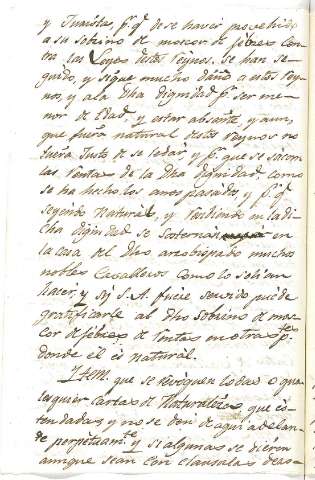 y Juristas, p.r q.e de se haver provehido
a su sobrino de moscor de fibres con-
tra las Leyes destos Reynos. Se han se-
guido, y sigue mucho daño a estos Rey-
nos, y a la dha dignidad p.r ser me-
nor de Edad, y estar absente, y aun,
que fuera natural destos Reynos no
fuera Justo de se le dar, y p.r que se sacan
las Rentas de la dha dignidad como
se ha hecho los años pasados, y p.r q.e
seyendo Natural, y Residiendo en la di-
cha dignidad se sosternan en
la casa del dho arzobispado muchos
nobles Cavalleros como lo solian
hacer, y si S. A. fuere servido puede
gratificarle al dho sobrino de mos-
cor de fibres de Rentas en otras p.tes
donde el es natural.
Item. que se revoquen todas o qua-
lesquier cartas de Naturaleza, que es-
ten dadas y no se den de aqui adelan-
te perpetuam.te y si algunas se dieren
aunque sean con clausulas dero-